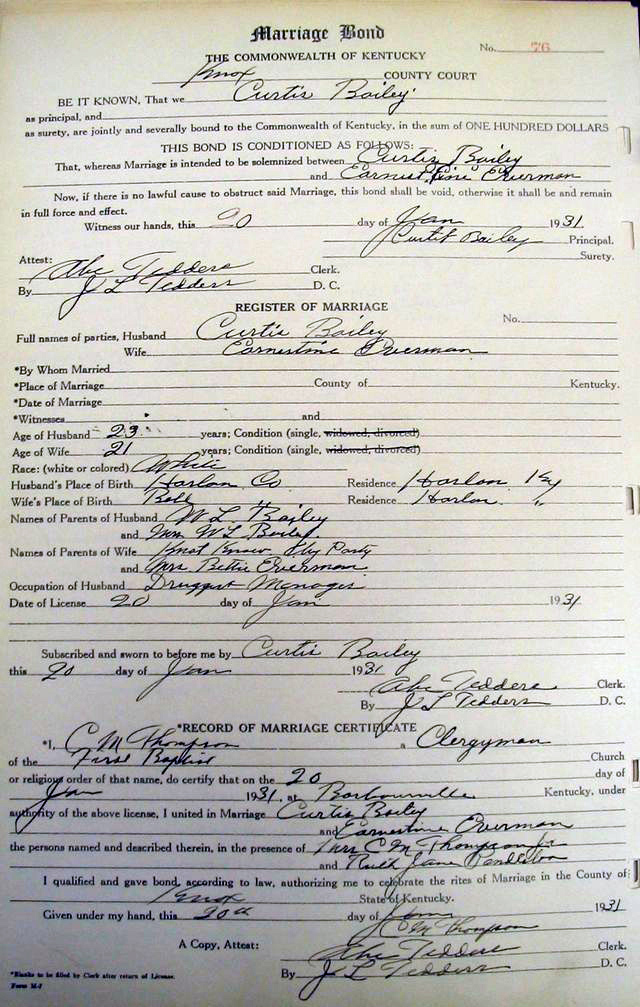 Marriage Bond
No. 76
THE COMMONWEALTH OF KENTUCKY
Knox COUNTY COURT
BE IT KNOWN, That we Curtis Bailey
as principal, and
as surety, are jointly and severally bound to the Commonwealth of Kentucky, in the sum of ONE HUNDRED DOLLARS
THIS BOND IS CONDITIONED AS FOLLOWS:
That, whereas Marriage is intended to be solemnized between Curtis Bailey
and Earnestine Everman
Now, if there is no lawful cause to obstruct said Marriage, this bond shall be void, otherwise it shall be and remain
in full force and effect.
Witness our hands, this 20 day of Jan 1931
Curtis Bailey Principal.
Surety.
Attest:
Abe Tedders Clerk.
By J L Tedders D. C.
REGISTER OF MARRIAGE
No.
Full names of parties, Husband Curtis Bailey
Wife Earnestine Everman
*By Whom Married
*Place of Marriage County of Kentucky.
*Date of Marriage
*Witnesses and
Age of Husband 23 years; Condition (single, widowed, divorced)
Age of Wife 21 years; Condition (single, widowed, divorced)
Race: (white or colored) White
Husband's Place of Birth Harlan Co Residence Harlan Ky
Wife's Place of Birth Bell " Residence Harlan "
Names of Parents of Husband W L Bailey
and Mrs W L Bailey
Names of Parents of Wife Party
and Mrs Bettie Everman
Occupation of Husband Druggist Manager
Date of License 20 day of Jan 1931
Subscribed and sworn to before me by Curtis Bailey
this 20 day of Jan 1931
Abe Tedders Clerk.
By J L Tedders D. C.
*RECORD OF MARRIAGE CERTIFICATE
*I, C M Thompson a Clergyman
of the First Baptist Church
or religious order of that name, do certify that on the 20 day of
Jan 1931, at Barbourville Kentucky, under
authority of the above license, I united in Marriage Curtis Bailey
and Earnestine Everman
the persons named and described therein, in the presence of Mrs C M Thompson
and Ruth Jane Pendleton
I qualified and gave bond, according to law, authorizing me to celebrate the rites of Marriage in the County of
Knox State of Kentucky.
Given under my hand, this 20th day of Jan 1931
C M Thompson
A Copy, Attest: Abe Tedders Clerk.
By J L Tedders D. C.
*Blanks to be filled by Clerk after return of License.
Form M-7